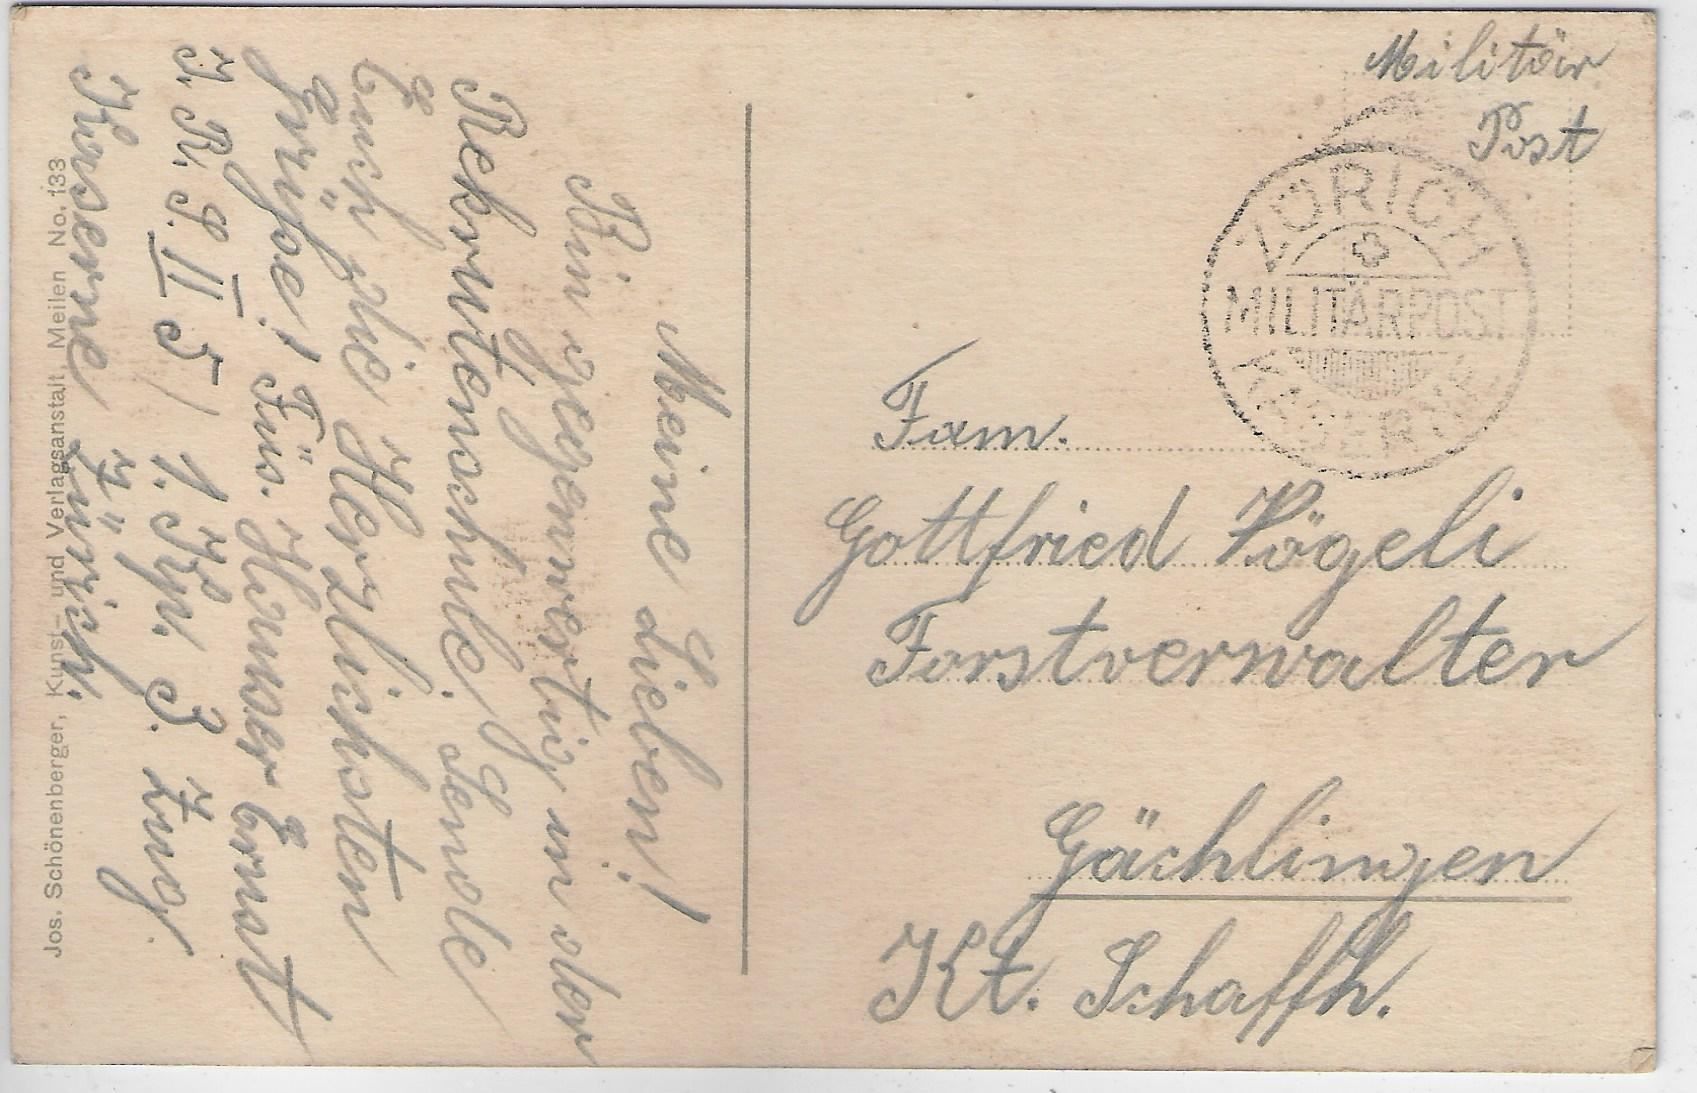 Meine Lieben!
Bin gegenwärtig in der
Rekrutenschule. Sende
Euch die Herzlichsten
Grüße! Füs. Hauser Ernst
I. R. S. II 5 / 1. Kp. 3. Zug.
Kaserne Zürich.
Jos. Schönenberger, Kunst- und Verlagsanstalt, Meilen No. 133
Militär
Post
ZÜRICH
MILITÄRPOST
KASERNE
Fam.
Gottfried Vögeli
Forstverwalter
Gächlingen
Kt. Schaffh.